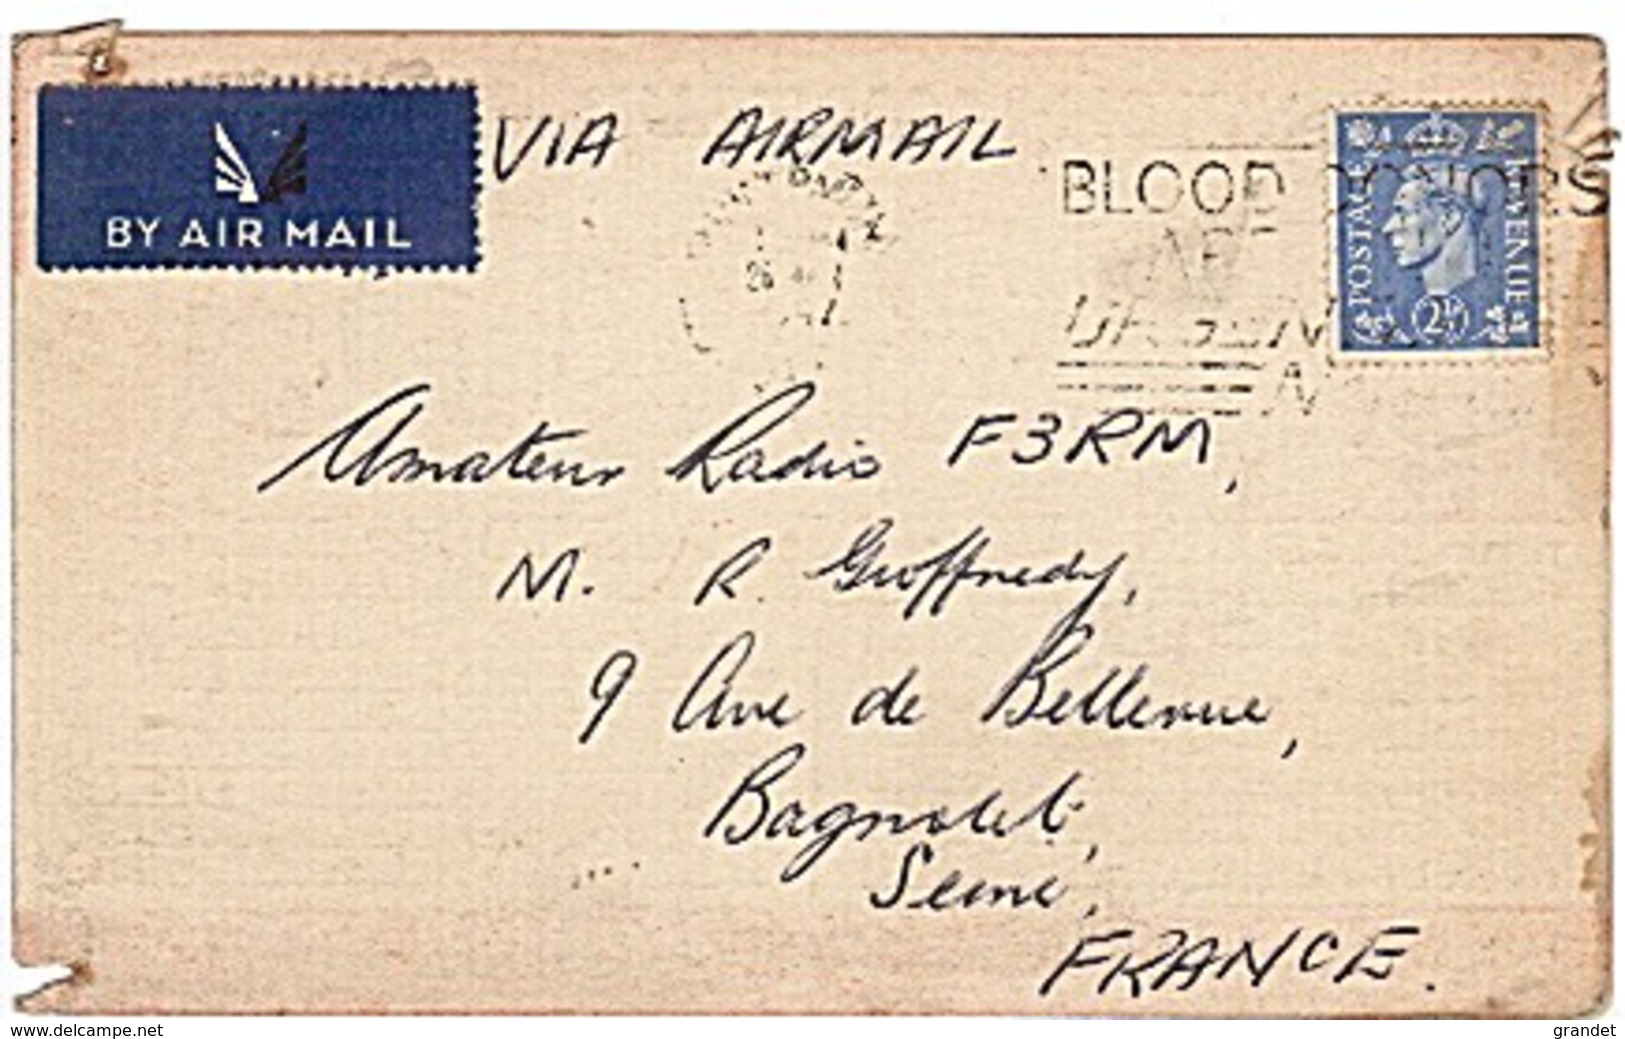 BY AIR MAIL
VIA AIRMAIL
BLOOD DONORS
ARE
URGEN
26
POSTAGE REVENUE
2½
Amateur Radio F3RM,
M. R. Groffredy,
9 Ave de Bellevue,
Bagnolet,
Seine,
FRANCE.
www.delcampe.net
grandet